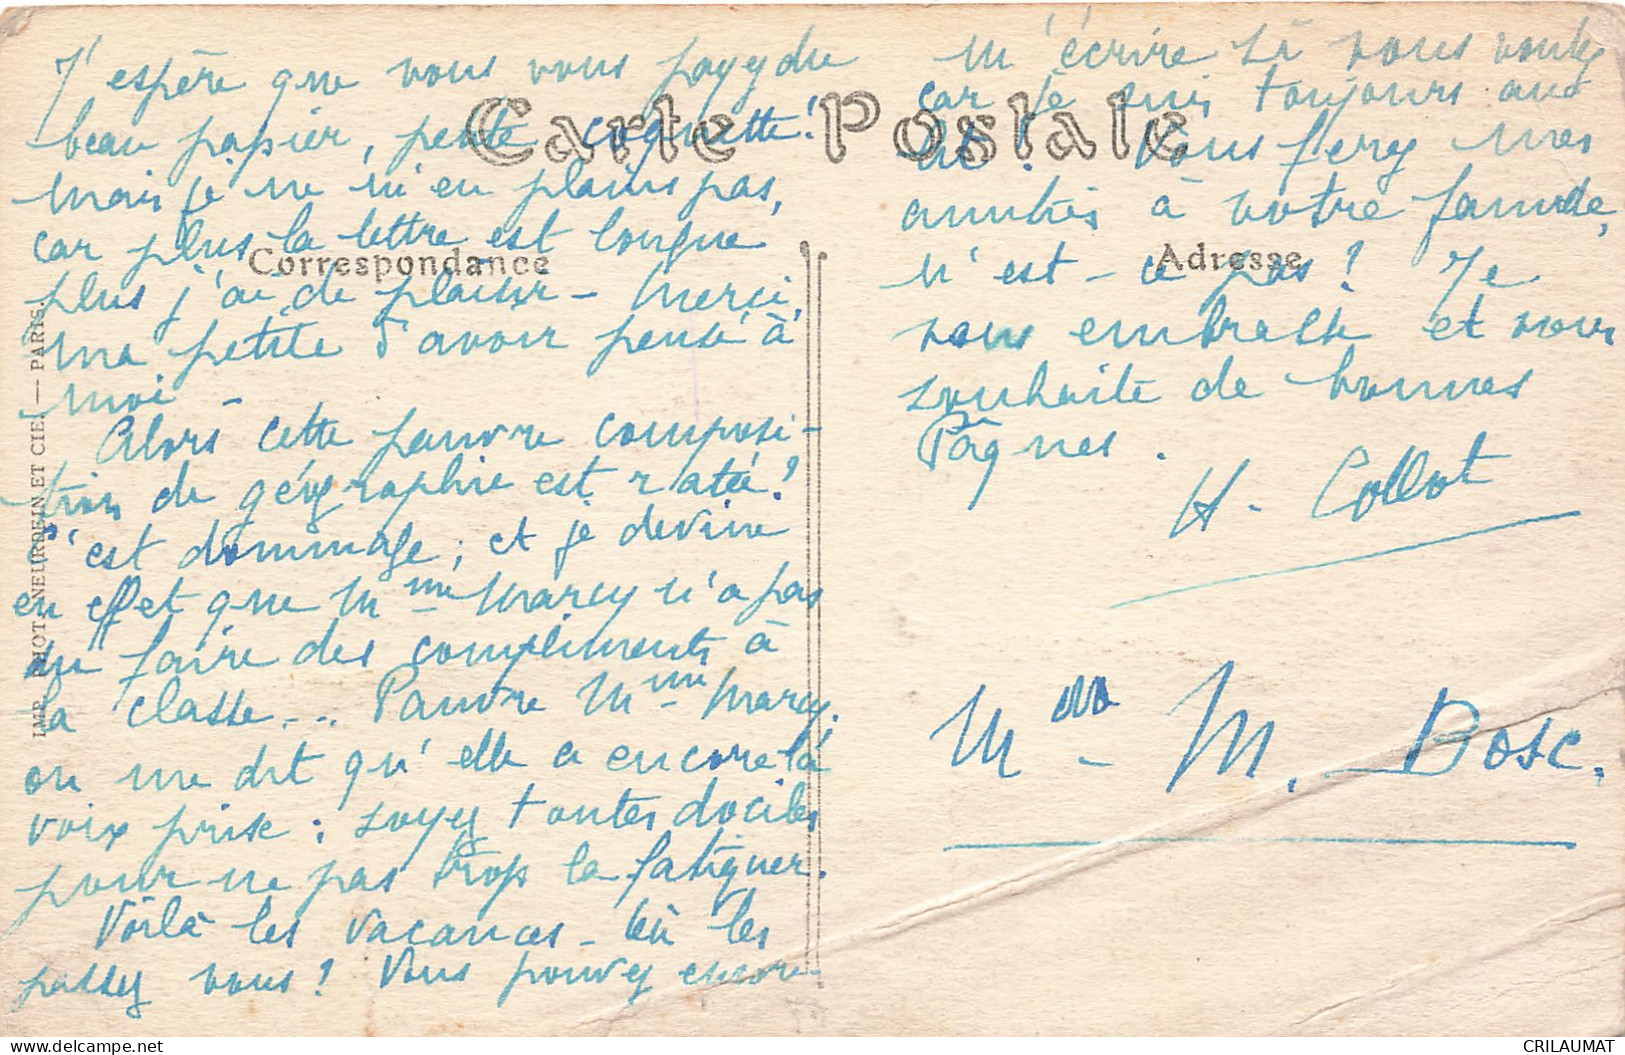 J'espère que vous vous payez du
beau papier, petite coquette!
mais je ne m'en plains pas,
car plus la lettre est longue
plus j'ai de plaisir - Merci,
ma petite d'avoir pensé à
moi -
Alors cette pauvre composi-
tion de géographie est ratée!
C'est dommage; et je devine
en effet que Mme Marcy n'a pas
du faire des compliments à
la classe... Pauvre Mme Marcy.
on me dit qu'elle a encore la
voix prise : soyez toutes dociles
pour ne pas trop la fatiguer.
Voilà les vacances - Où les
passez vous? Vous pouvez encore
m'écrire si vous voulez
car je suis toujours au
lit! Vous ferez mes
amitiés à votre famille,
n'est-ce pas? Je
vous embrasse et vous
souhaite de bonnes
Pâques.
H. Collot
Mlle M. Bosc.
Carte Postale
Correspondance
Adresse
IMP. PHOT. NEURDEIN ET CIE. — PARIS.
CRILAUMAT